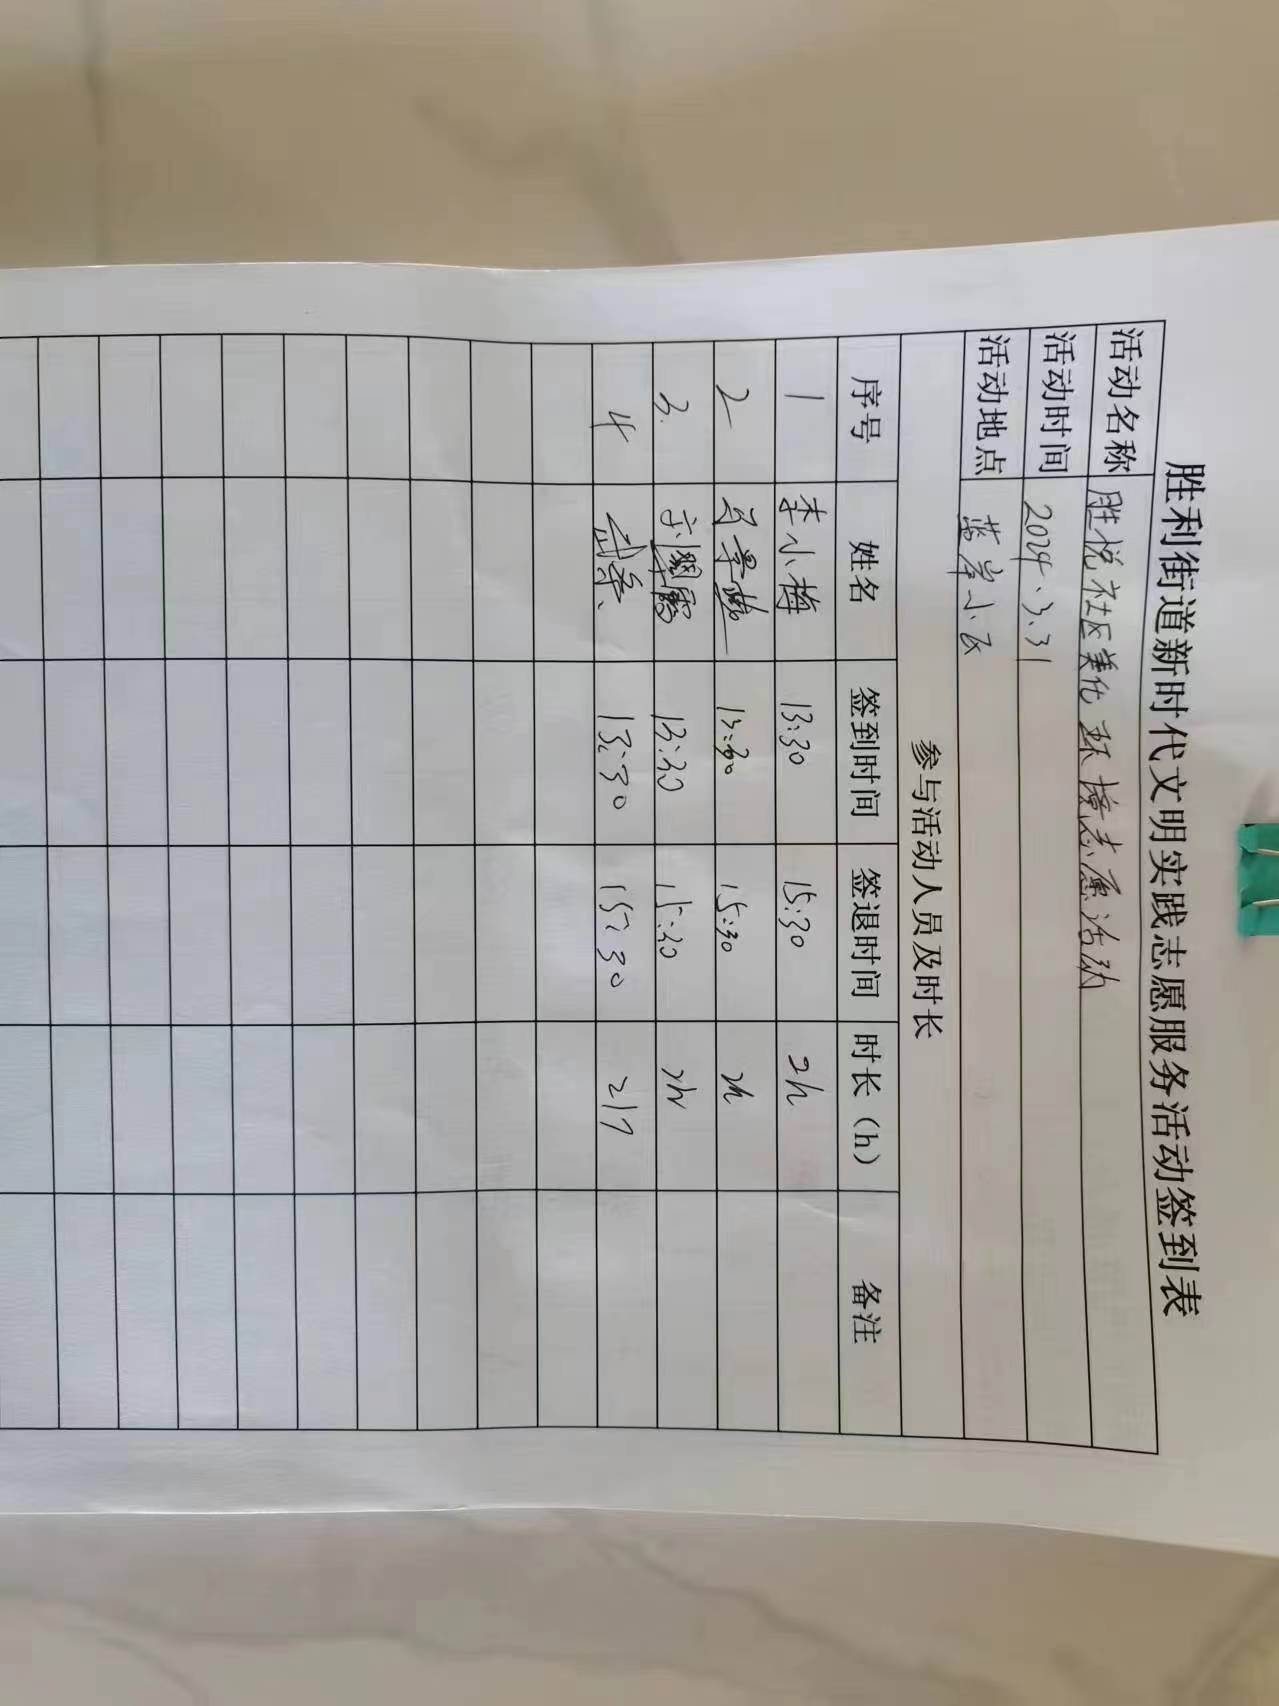 胜利街道新时代文明实践志愿服务活动签到表
活动名称 胜悦社区美化环境志愿活动
活动时间 2024.3.31
活动地点 蓝岸小区
参与活动人员及时长
序号 姓名 签到时间 签退时间 时长（h） 备注
1 李小梅 13:30 15:30 2h
2 13:30 15:30 2h
3. 13:30 15:30 2h
4 13:30 15:30 2h